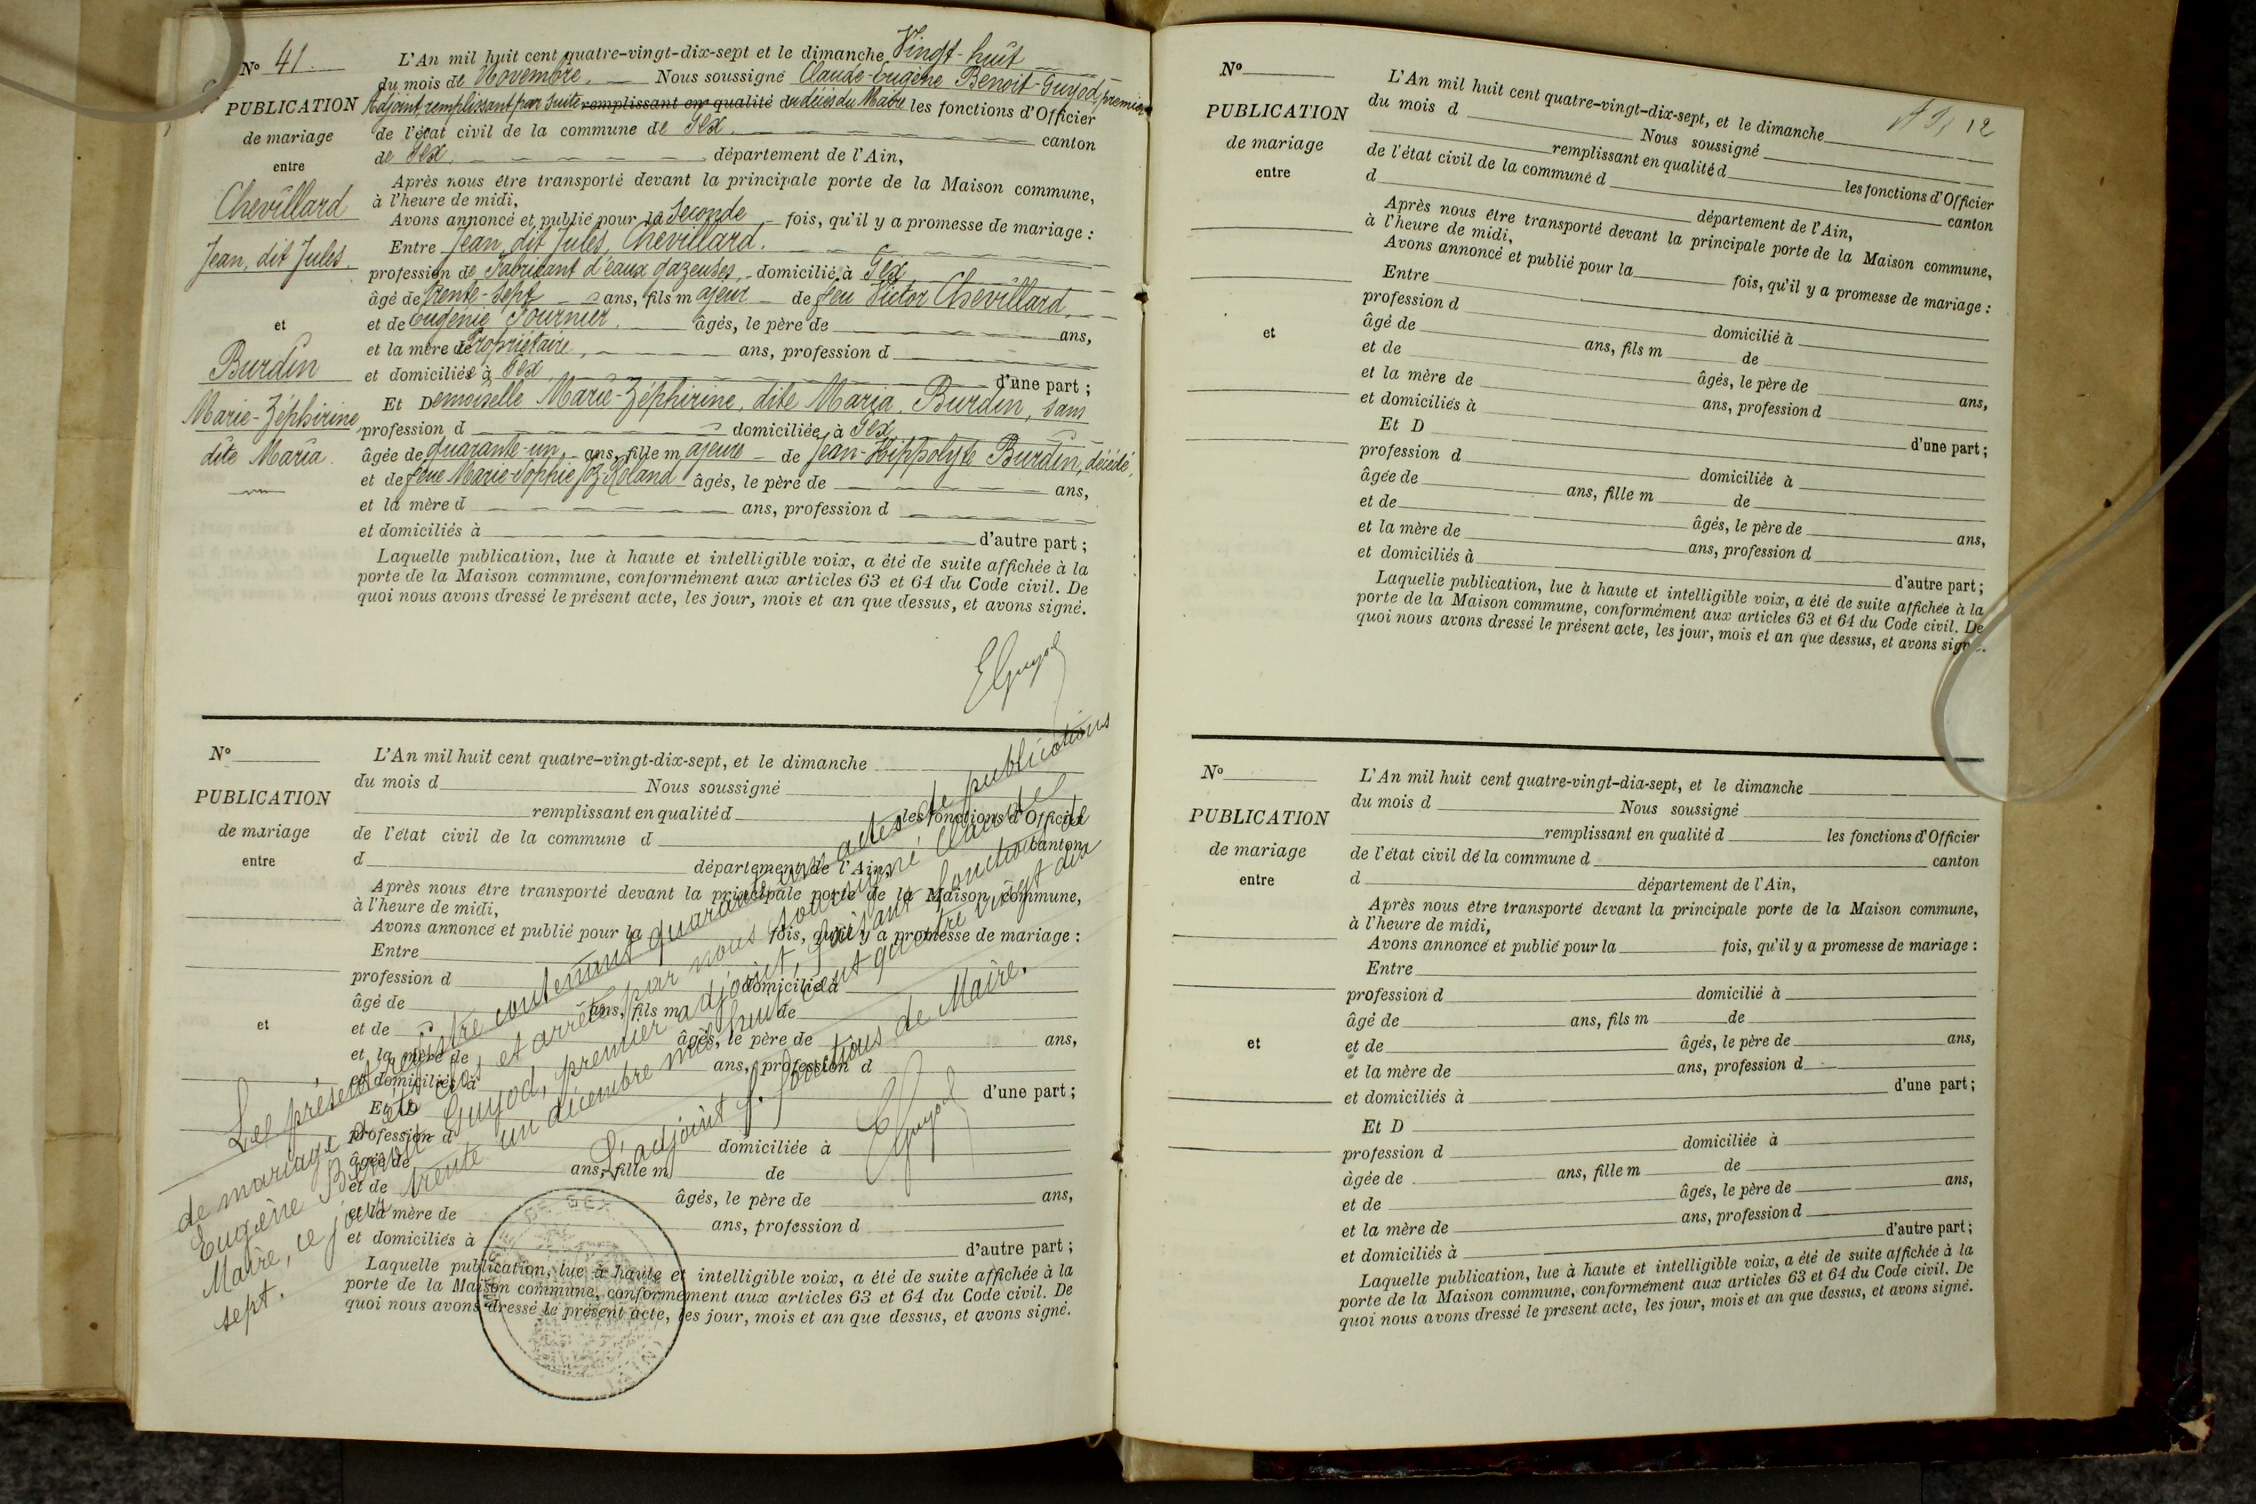 N° 41.
PUBLICATION
de mariage
entre
Chevillard
Jean, dit Jules.
et
Burdin
Marie-Zéphirine
dite Maria.
L'An mil huit cent quatre-vingt-dix-sept et le dimanche Vingt-huit
du mois de Novembre. Nous soussigné Claude-Eugène Benoit-Guyod, premier
Adjoint, remplissant par suite remplissant en qualité du décès du Maire les fonctions d'Officier
de l'état civil de la commune de Gex. canton
de Gex. département de l'Ain,
Après nous être transporté devant la principale porte de la Maison commune,
à l'heure de midi,
Avons annoncé et publié pour la Seconde fois, qu'il y a promesse de mariage :
Entre Jean, dit Jules, Chevillard.
profession de Fabricant d'eaux gazeuses, domicilié à Gex
âgé de trente-sept ans, fils majeur de feu Victor Chevillard,
et de Eugénie Fournier. âgés, le père de ans,
et la mère de Propriétaire, ans, profession d
et domiciliée à Gex d'une part ;
Et Demoiselle Marie-Zéphirine, dite Maria, Burdin, sans
profession d domiciliée à Gex
âgée de quarante-un ans, fille majeure de Jean-Hippolyte Burdin, décédé,
et de feue Marie-Sophie Joz-Roland âgés, le père de ans,
et la mère d ans, profession d
et domiciliés à d'autre part ;
Laquelle publication, lue à haute et intelligible voix, a été de suite affichée à la
porte de la Maison commune, conformément aux articles 63 et 64 du Code civil. De
quoi nous avons dressé le présent acte, les jour, mois et an que dessus, et avons signé.
EGuyod
N°
PUBLICATION
de mariage
entre
et
L'An mil huit cent quatre-vingt-dix-sept, et le dimanche
du mois d Nous soussigné
remplissant en qualité d les fonctions d'Officier
de l'état civil de la commune d canton
d département de l'Ain,
Après nous être transporté devant la principale porte de la Maison commune,
à l'heure de midi,
Avons annoncé et publié pour la fois, qu'il y a promesse de mariage :
Entre
profession d domicilié à
âgé de ans, fils m de
et de âgés, le père de ans,
et la mère de ans, profession d
et domiciliés à d'une part ;
Et D
profession d domiciliée à
âgée de ans, fille m de
et de âgés, le père de ans,
et la mère de ans, profession d
et domiciliés à d'autre part ;
Laquelle publication, lue à haute et intelligible voix, a été de suite affichée à la
porte de la Maison commune, conformément aux articles 63 et 64 du Code civil. De
quoi nous avons dressé le présent acte, les jour, mois et an que dessus, et avons signé.
Le présent registre contenant quarante un actes de publications
de mariage a été clos et arrêté par nous soussigné Claude
Eugène Benoit-Guyod, premier adjoint, faisant fonctions de
Maire, ce jour trente un décembre mil huit cent quatre vingt dix
sept.
L'adjoint f. fonctions de Maire.
EGuyod
DE GEX
N°
PUBLICATION
de mariage
entre
et
12
L'An mil huit cent quatre-vingt-dix-sept, et le dimanche
du mois d Nous soussigné
remplissant en qualité d les fonctions d'Officier
de l'état civil de la commune d canton
d département de l'Ain,
Après nous être transporté devant la principale porte de la Maison commune,
à l'heure de midi,
Avons annoncé et publié pour la fois, qu'il y a promesse de mariage :
Entre
profession d domicilié à
âgé de ans, fils m de
et de âgés, le père de ans,
et la mère de ans, profession d
et domiciliés à d'une part ;
Et D
profession d domiciliée à
âgée de ans, fille m de
et de âgés, le père de ans,
et la mère de ans, profession d
et domiciliés à d'autre part ;
Laquelle publication, lue à haute et intelligible voix, a été de suite affichée à la
porte de la Maison commune, conformément aux articles 63 et 64 du Code civil. De
quoi nous avons dressé le présent acte, les jour, mois et an que dessus, et avons signé.
N°
PUBLICATION
de mariage
entre
et
L'An mil huit cent quatre-vingt-dia-sept, et le dimanche
du mois d Nous soussigné
remplissant en qualité d les fonctions d'Officier
de l'état civil dé la commune d canton
d département de l'Ain,
Après nous être transporté devant la principale porte de la Maison commune,
à l'heure de midi,
Avons annoncé et publié pour la fois, qu'il y a promesse de mariage :
Entre
profession d domicilié à
âgé de ans, fils m de
et de âgés, le père de ans,
et la mère de ans, profession d
et domiciliés à d'une part ;
Et D
profession d domiciliée à
âgée de ans, fille m de
et de âgés, le père de ans,
et la mère de ans, profession d
et domiciliés à d'autre part ;
Laquelle publication, lue à haute et intelligible voix, a été de suite affichée à la
porte de la Maison commune, conformément aux articles 63 et 64 du Code civil. De
quoi nous avons dressé le present acte, les jour, mois et an que dessus, et avons signé.